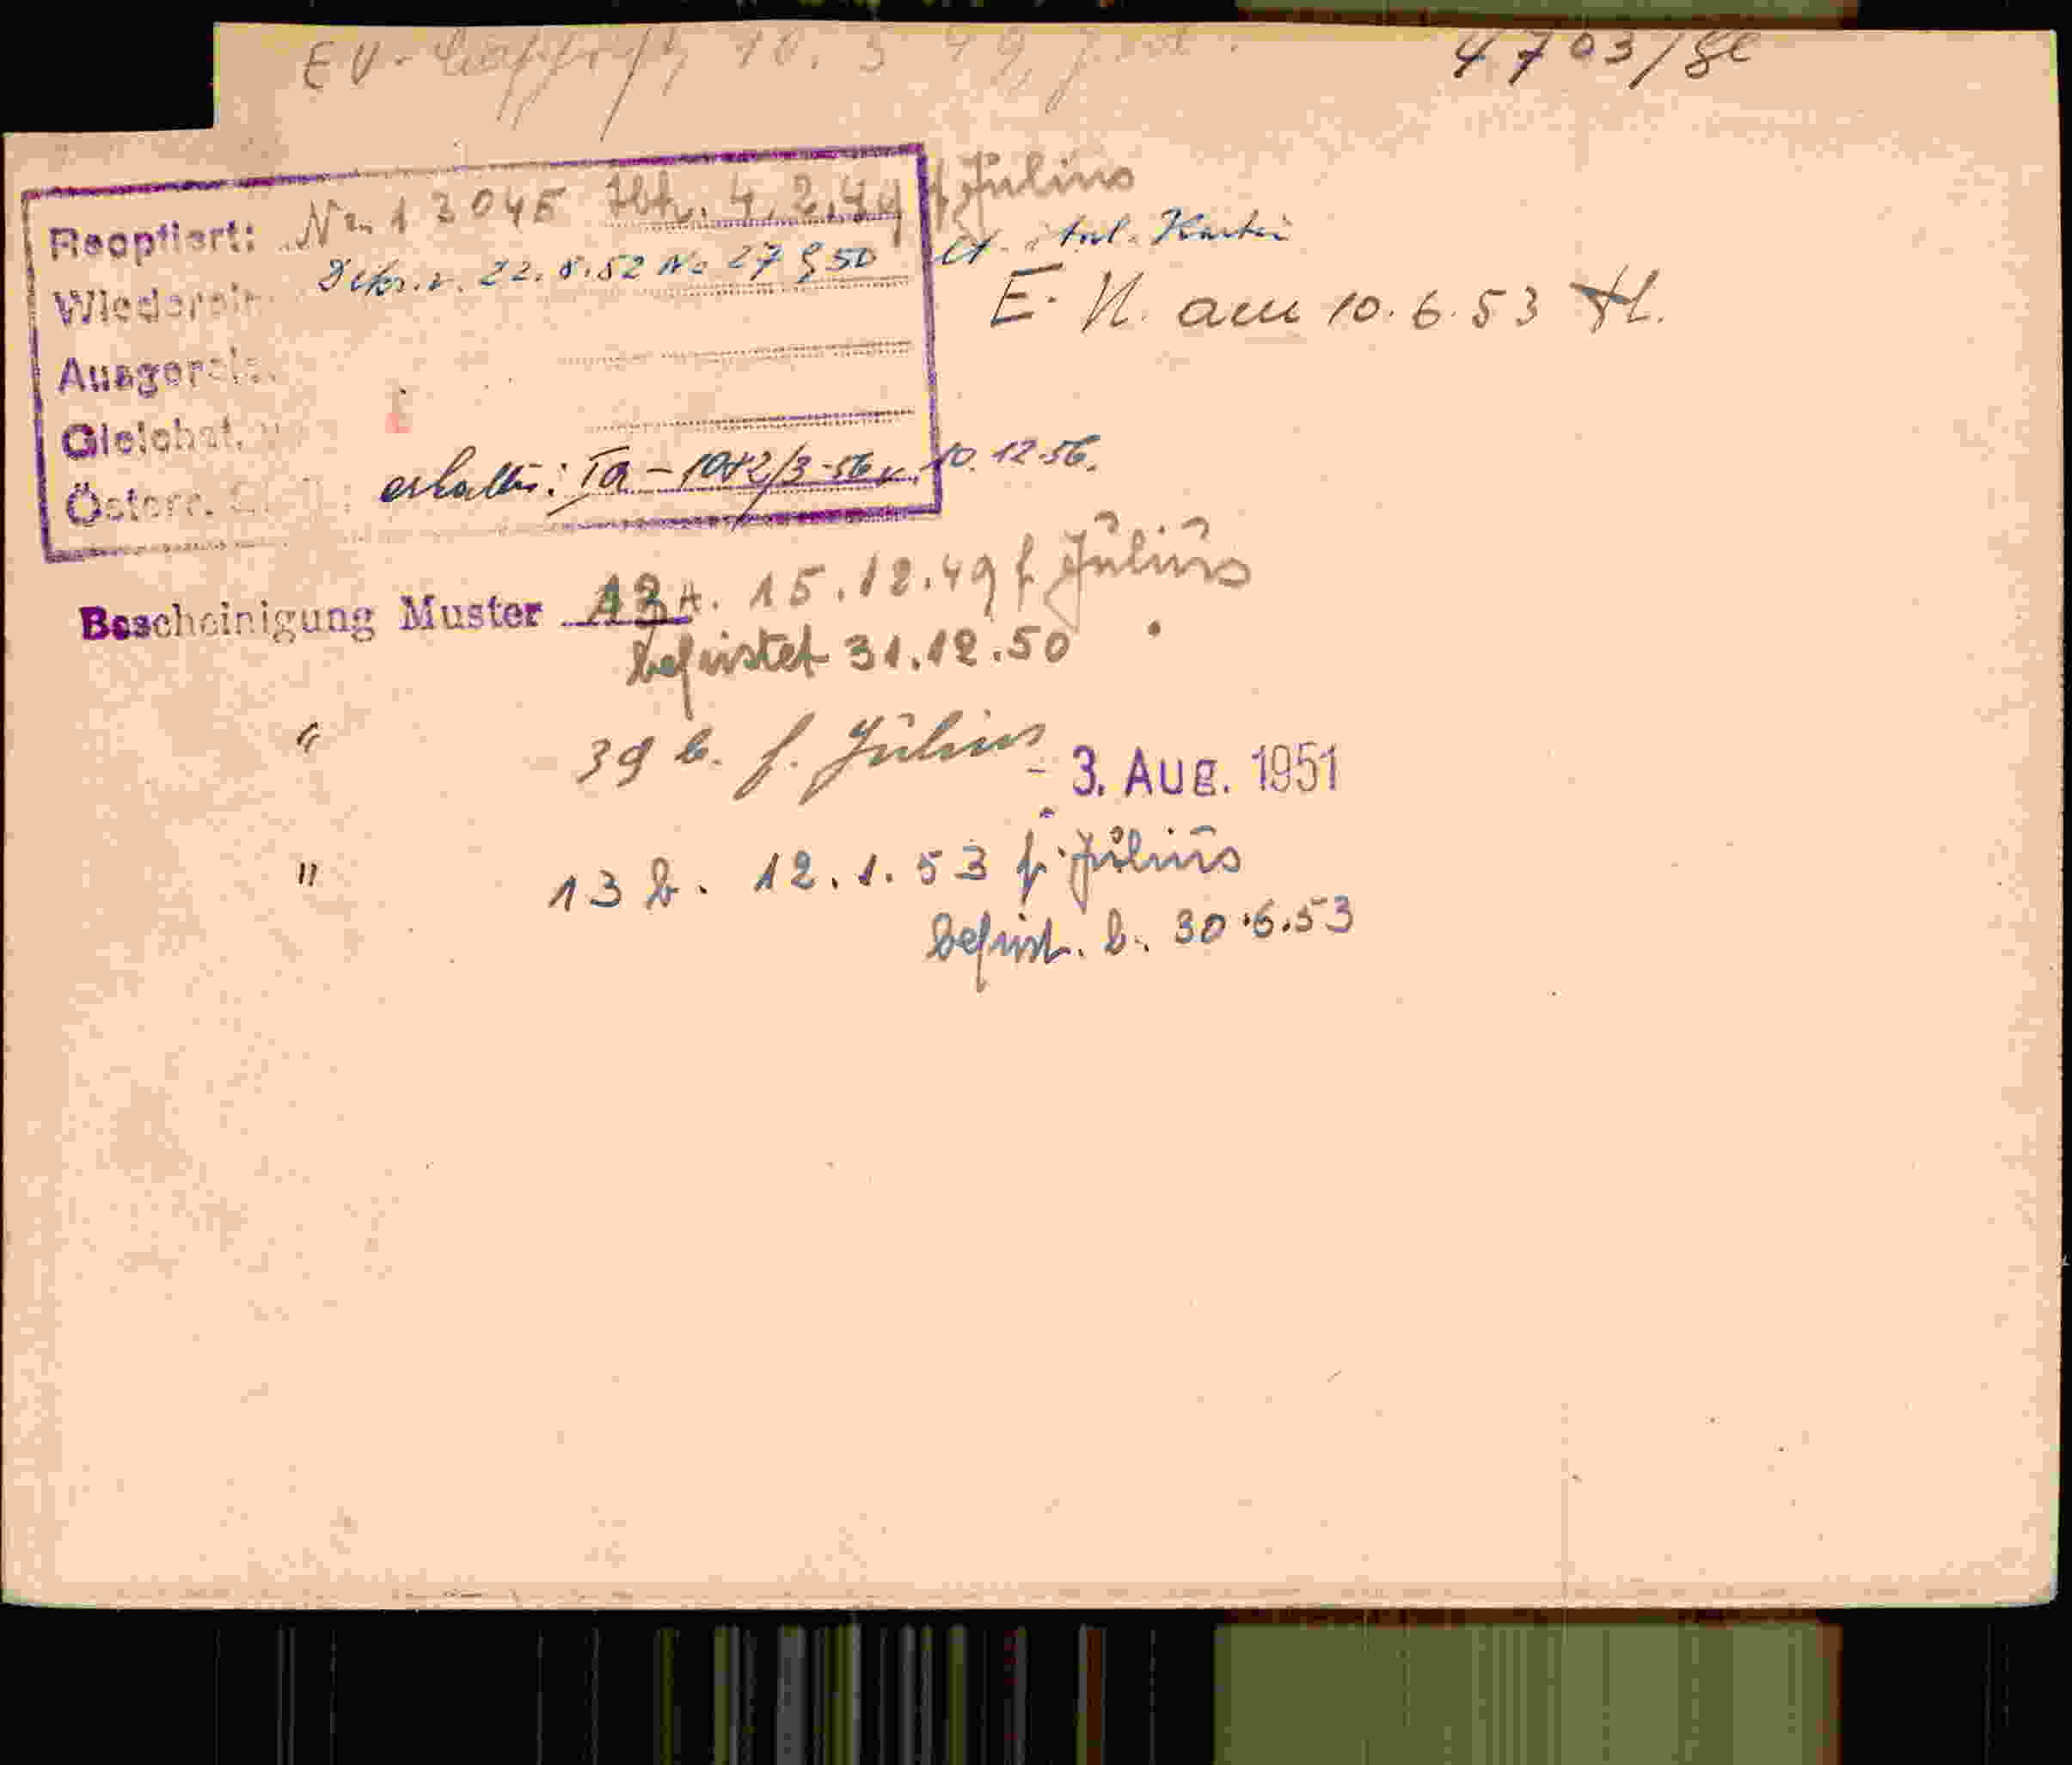 EV- 10. 3 49
4703/
Reoptiert: Nr. 13045 4.2.49 f. Julius
Dekr. v. 22.8.52 No 27 § 50 lt. ital. Kartei
E. V. am 10.6.53
erhalten: Ia - 1042/3-56 v. 10.12.56.
Österr.
Bescheinigung Muster 13 A. 15.12.49 f. Julius
befristet 31.12.50
" 39 b. f. Julius - 3. Aug. 1951
" 13 b. 12.1.53 f. Julius
befrist. b. 30.6.53